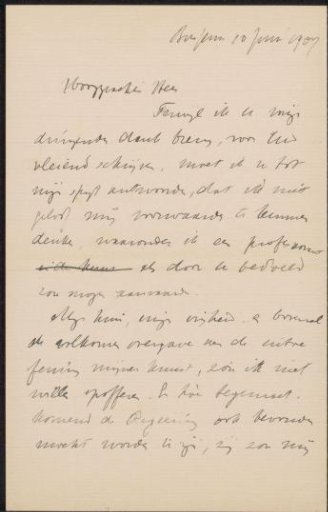 Bussum 10 Juni 1907
Hooggeachte Heer
Terwijl ik u mijn
dank breng, voor Uw
vleiend schrijven, moet ik u tot
mijn spijt antwoorden, dat ik niet
geloof mij voorwaarden te kunnen
denken, waaronder ik een professoraat
als door u bedoeld
zou mogen aanvaarden.
Mijn huis, mijn vrijheid, &
de volkomen overgave aan de
mijner kunst, zou ik niet
willen opofferen. En hoe tegemoet-
komend de Regeering ook bevonden
mocht worden te zijn, zij zou mij